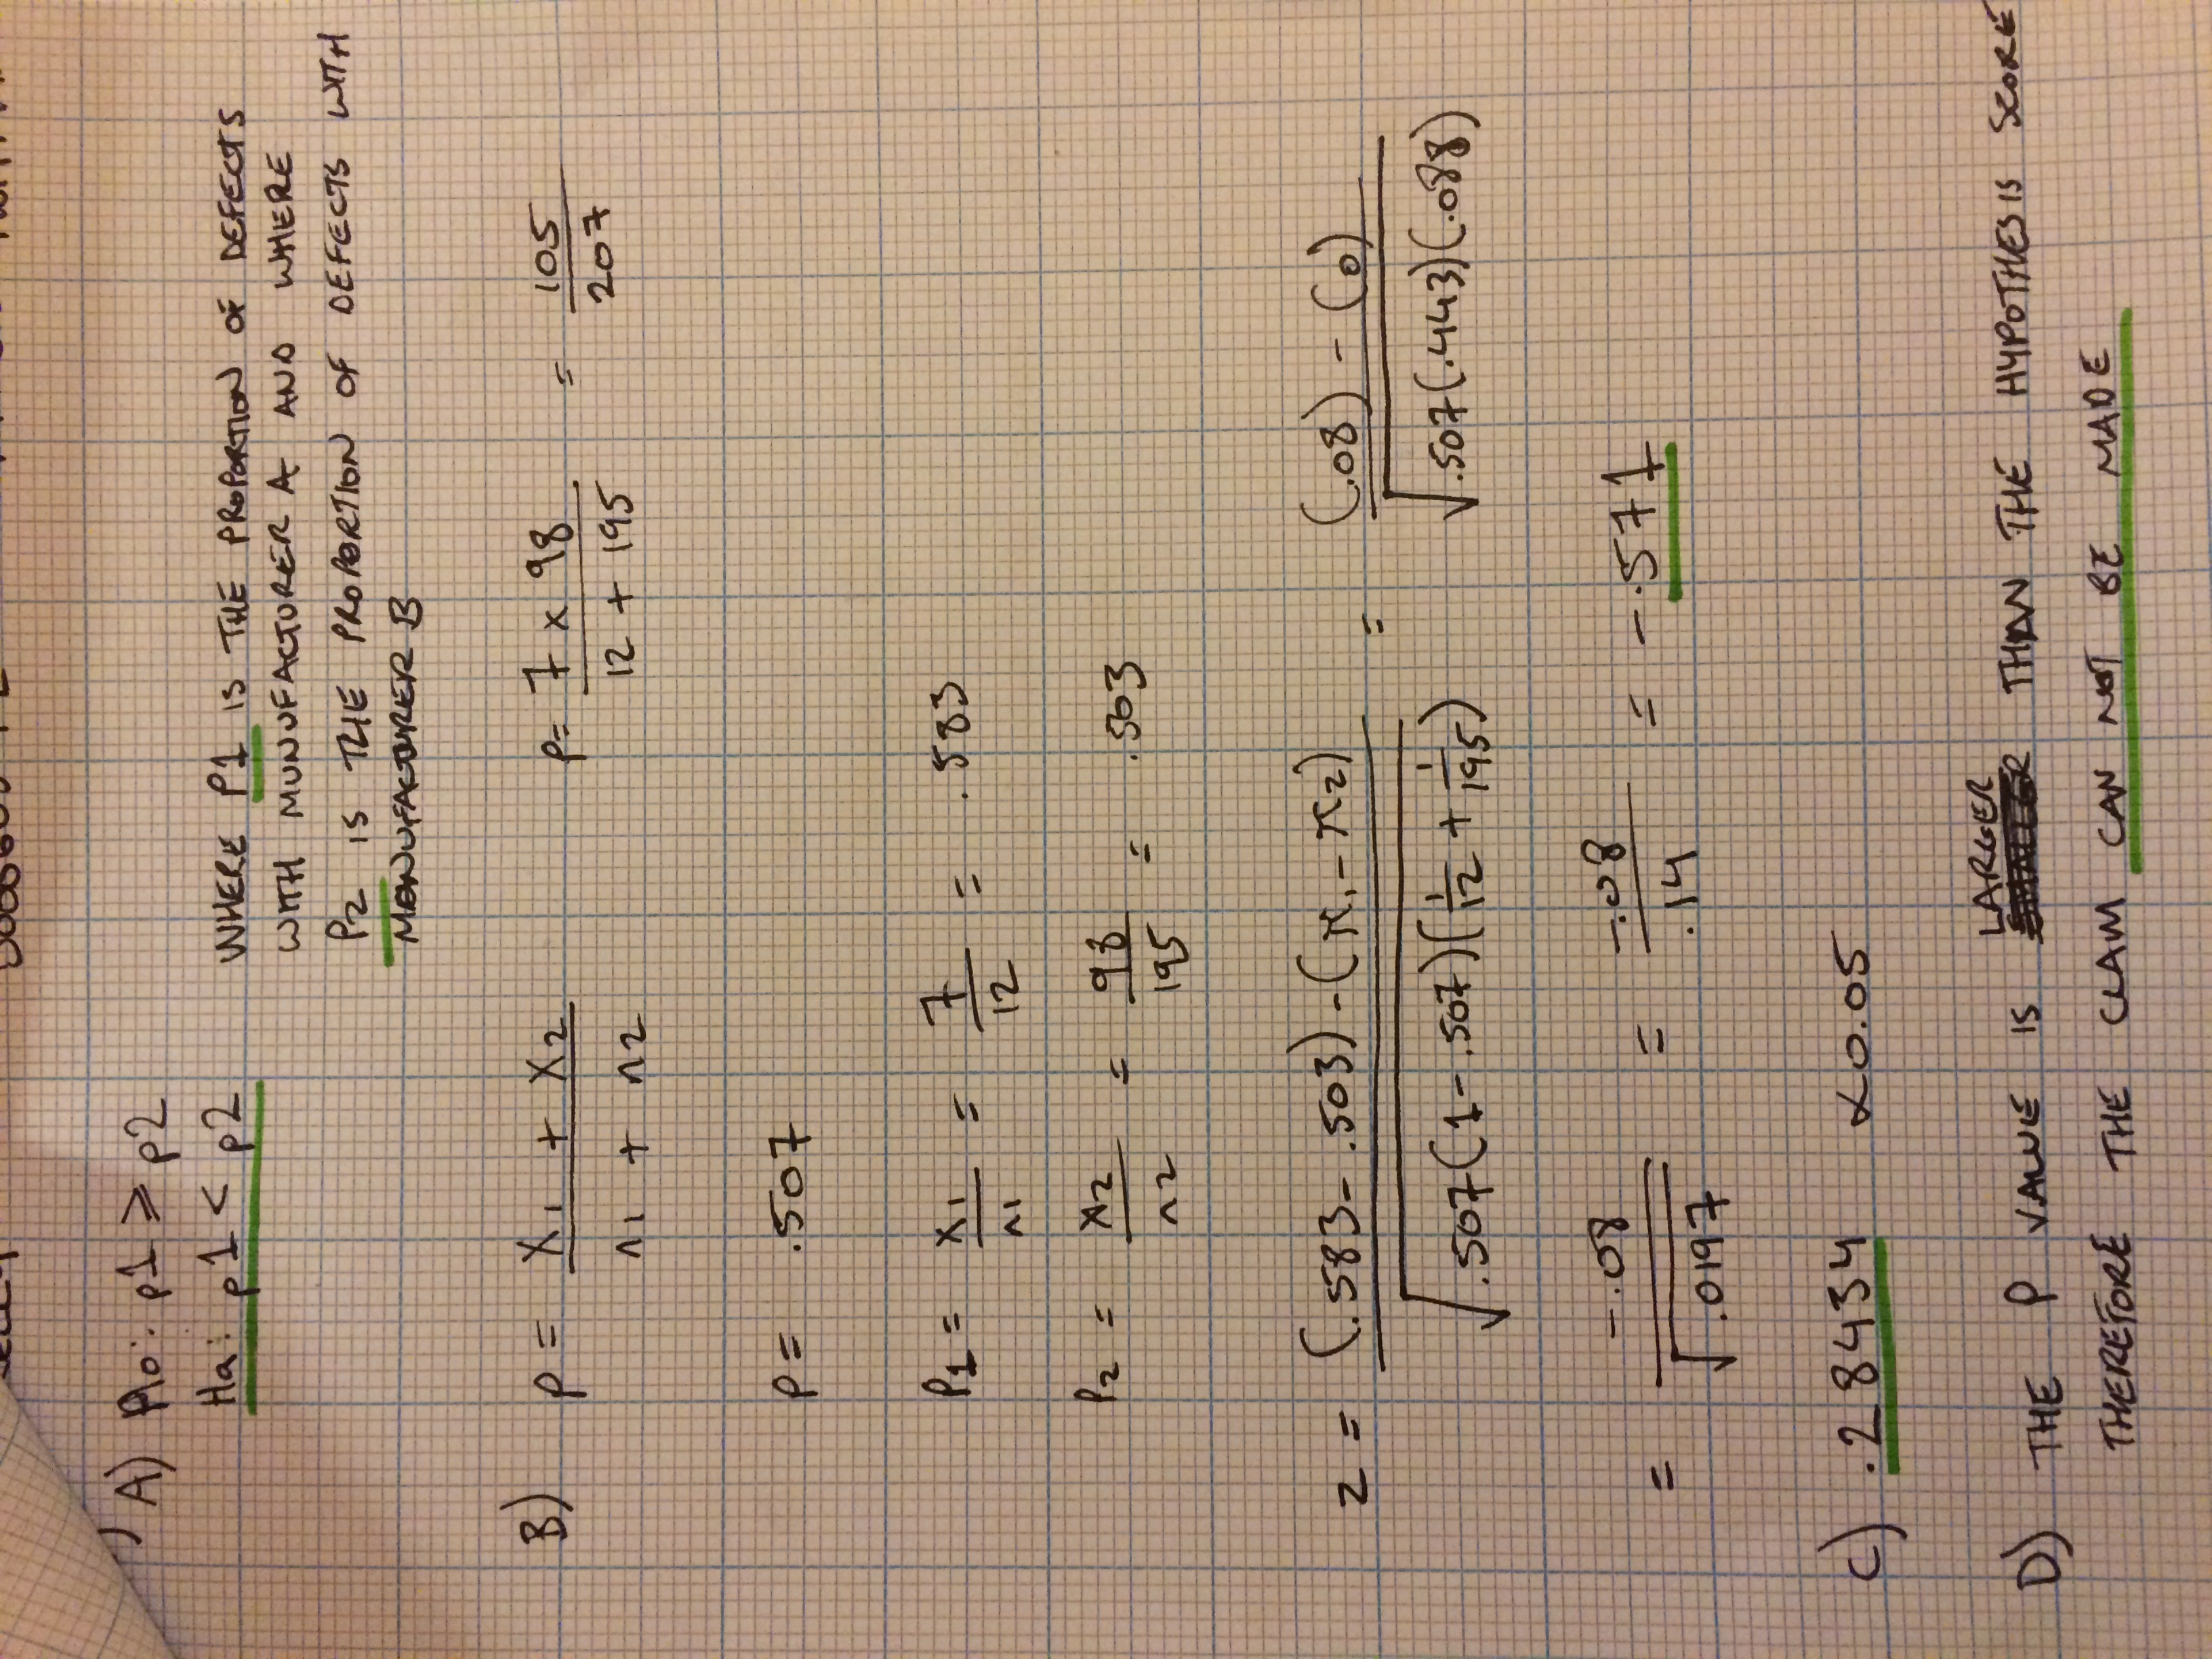 A) Ho: p1 ≥ p2
Ha: p1 < p2
WHERE P1 IS THE PROPORTION OF DEFECTS
WITH MUNUFACTURER A AND WHERE
P2 IS THE PROPORTION OF DEFECTS WITH
MANUFACTURER B
B) p = X1 + X2 / n1 + n2 p= 7 x 98 / 12 + 195 = 105 / 207
p = .507
P1 = x1 / n1 = 7 / 12 = .583
P2 = x2 / n2 = 98 / 195 = .503
z = (.583 - .503) - (π1 - π2) / √.507(1-.507)(1/12 + 1/195) = (.08) - (0) / √.507(.443)(.088)
= -.08 / √.0197 = -.08 / .14 = -.571
C) .28434 α0.05
LARGER
D) THE P VALUE IS SMALLER THAN THE HYPOTHESIS SCORE
THEREFORE THE CLAM CAN NOT BE MADE